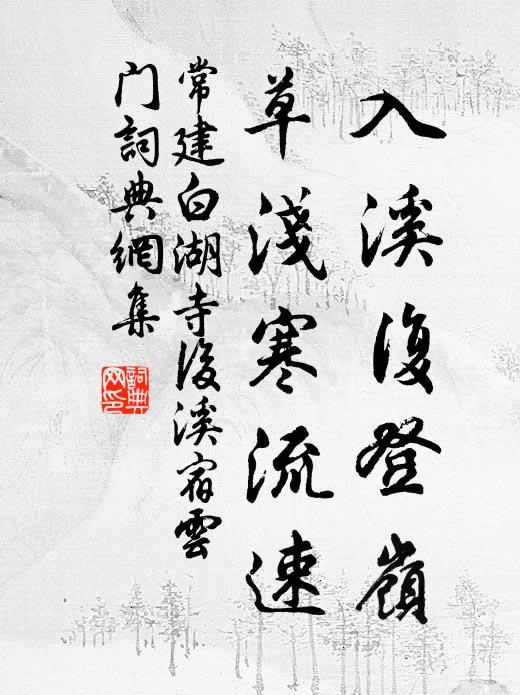 入溪復登嶺
草淺寒流速
常建白湖寺後溪宿雲
门詞典網集
詞典網印